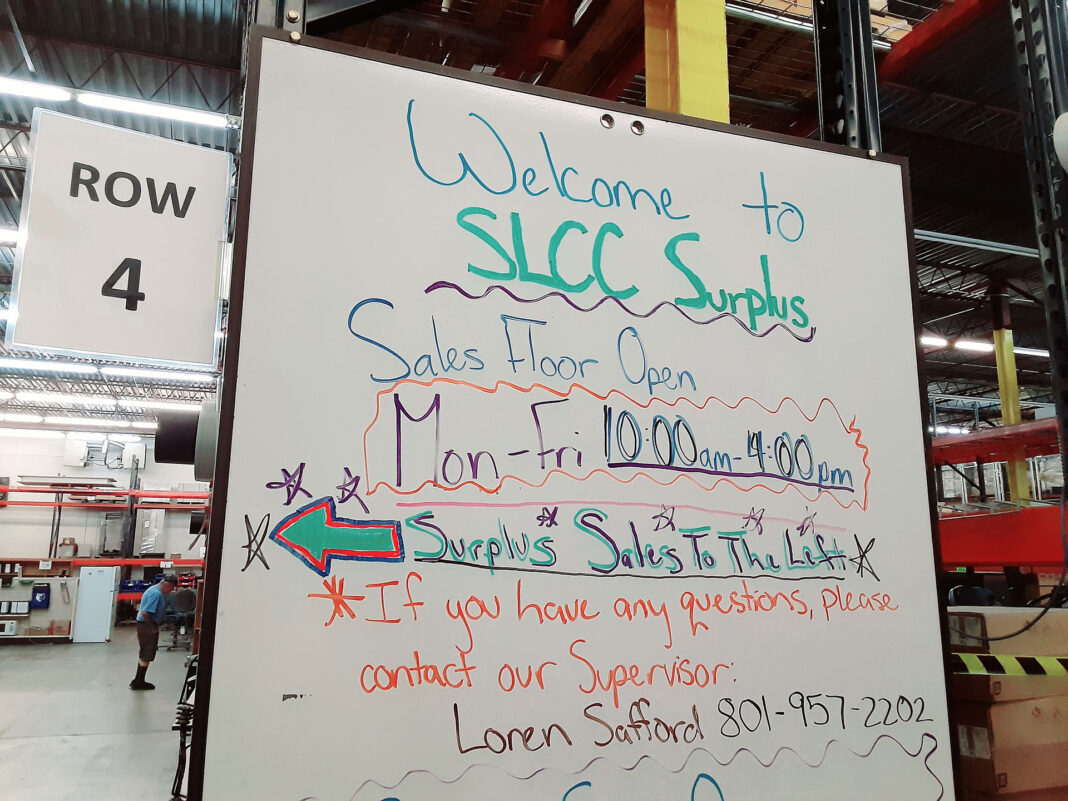 ROW
4
Welcome to
SLCC Surplus
Sales Floor Open
Mon-Fri 10:00am-4:00pm
Surplus Sales To The Left
If you have any questions, please
contact our Supervisor:
Loren Safford 801-957-2202